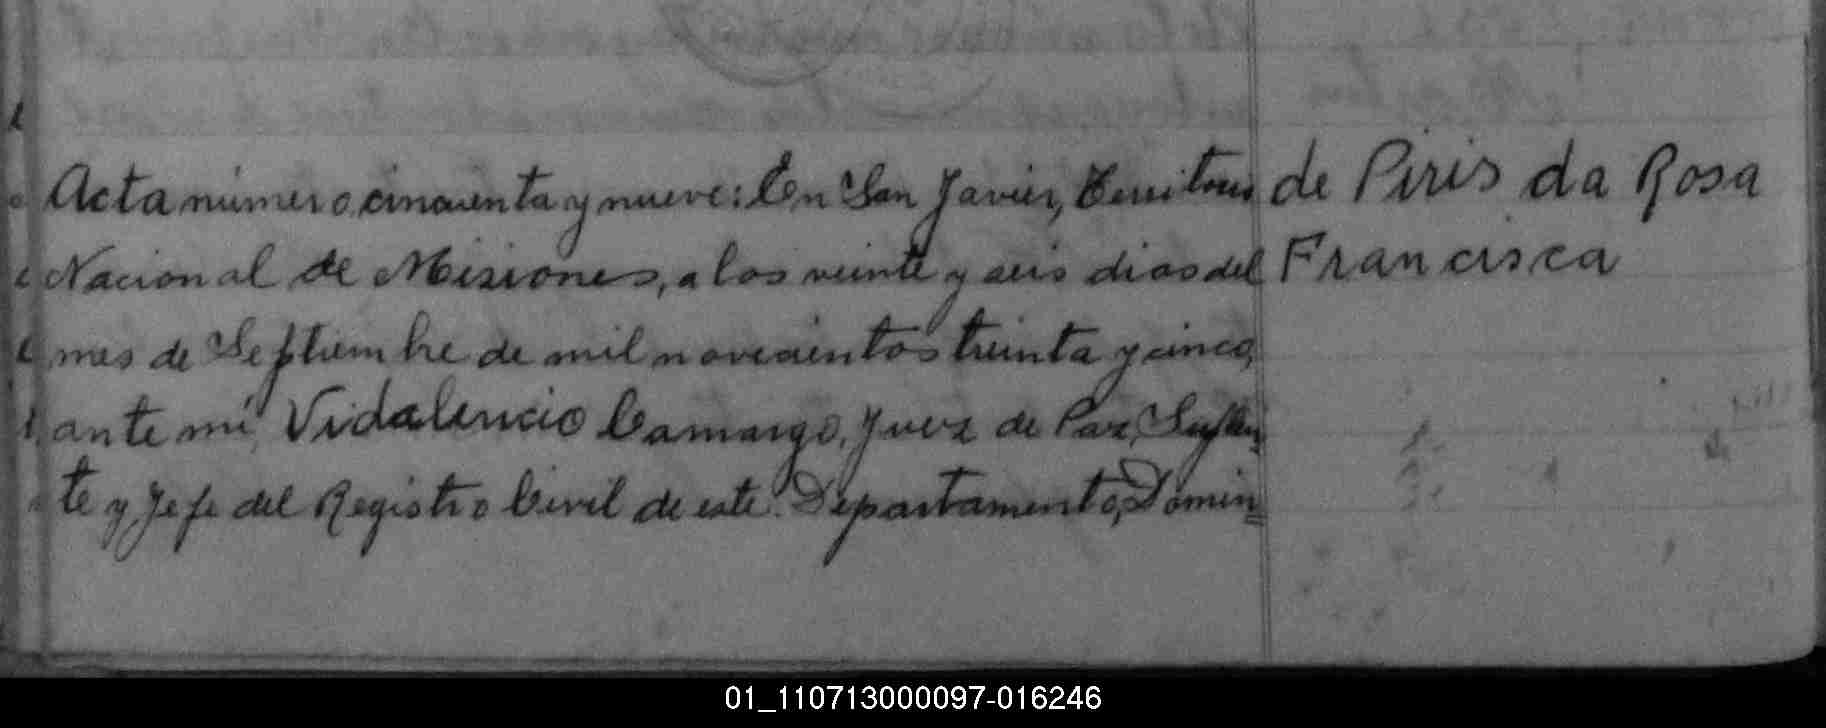 Acta número cincuenta y nueve: En San Javier, Territorio
Nacional de Misiones, a los veinte y seis dias del
mes de Septiembre de mil novecientos treinta y cinco,
ante mi, Vidalencio Camargo, Juez de Paz Suplen=
te y Jefe del Registro Civil de este Departamento, Domin=
de Piris da Rosa
Francisca
01_110713000097-016246